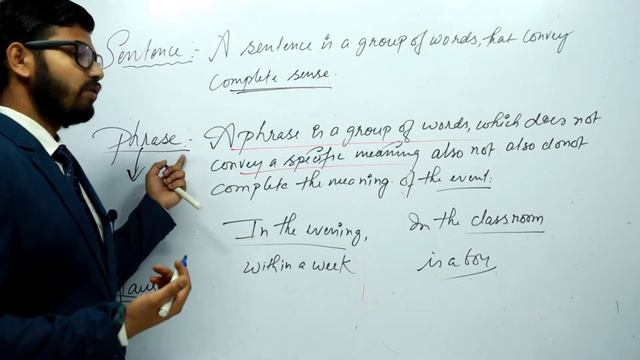 Sentence :- A sentence is a group of words, that convey
complete sense.
Phrase :- A phrase is a group of words, which does not
convey a specific meaning also not also donot
complete the meaning of the event.
In the evening, In the classroom
within a week is a boy